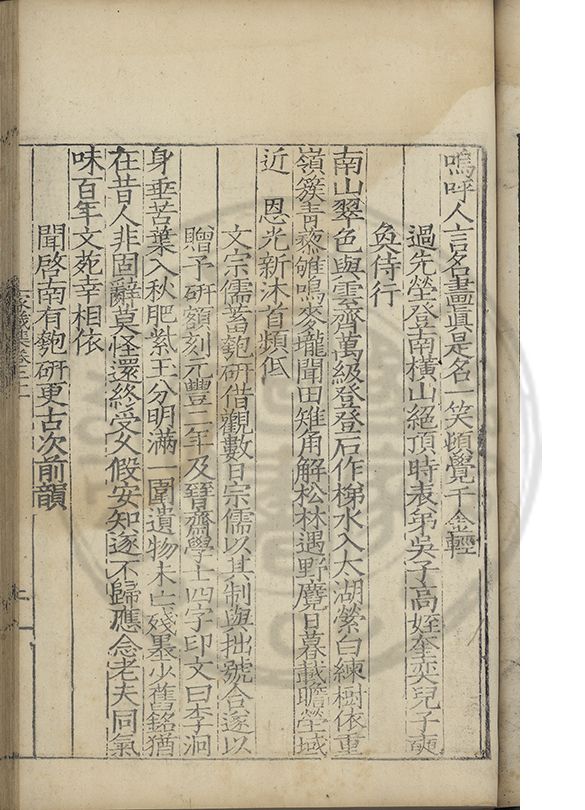 嗚呼人言名畫眞是名一笑頓覺千金輕
過先塋登南橫山絕頂時表弟吳子高姪奎奕兒子奭
奐侍行
南山翠色與雲齊萬級登登石作梯水入太湖縈白練樹依重
嶺簇青藜雉鳴麥隴聞田雉角解松林遇野麂日暮載瞻塋域
近　恩光新沐首頻低
文宗儒蓄匏研借觀數日宗儒以其制與拙號合遂以
贈予研額刻元豐二年及晉齋學士四字印文曰李洞
身垂苦葉入秋肥紫玉分明滿一圍遺物未亡殘墨少舊銘猶
在昔人非固辭莫怪還終受久假安知遂不歸應念老夫同氣
味百年文苑幸相依
聞啓南有匏研更古次前韻